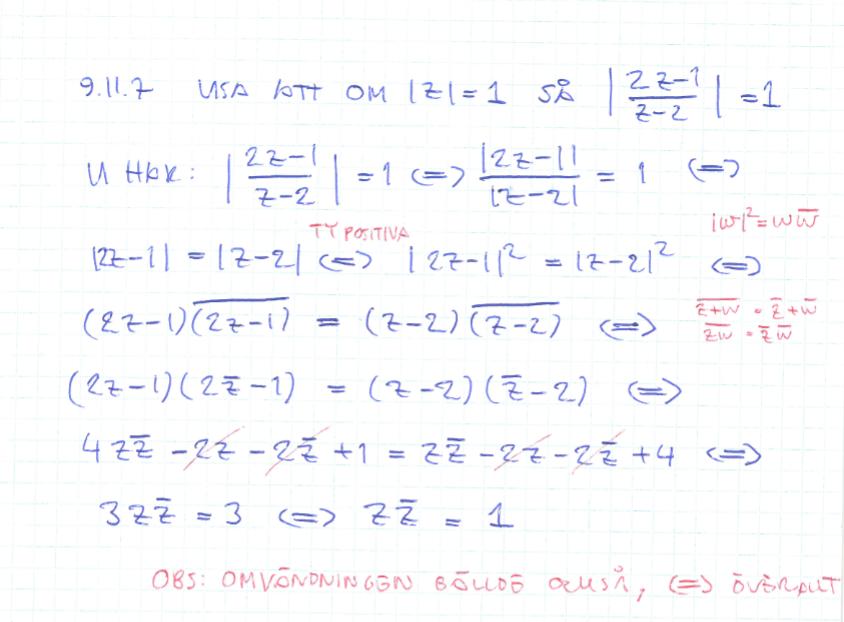 9.11.7 VISA ATT OM |z|=1 SÅ |(2z-1)/(z-2)| = 1
VI HAR: |(2z-1)/(z-2)| = 1 <=> |2z-1|/|z-2| = 1 <=>
|w|² = w w̄
|2z-1| = |z-2| <=> |2z-1|² = |z-2|² <=>
TY POSITIVA
(2z-1)(\overline{2z-1}) = (z-2)(\overline{z-2}) <=>
\overline{z+w} = z̄ + w̄
\overline{zw} = z̄ w̄
(2z-1)(2z̄-1) = (z-2)(z̄-2) <=>
4zz̄ - 2z - 2z̄ + 1 = zz̄ - 2z - 2z̄ + 4 <=>
3zz̄ = 3 <=> zz̄ = 1
OBS: OMVÄNDNINGEN GÄLLDE OCKSÅ, <=> ÖVERALLT